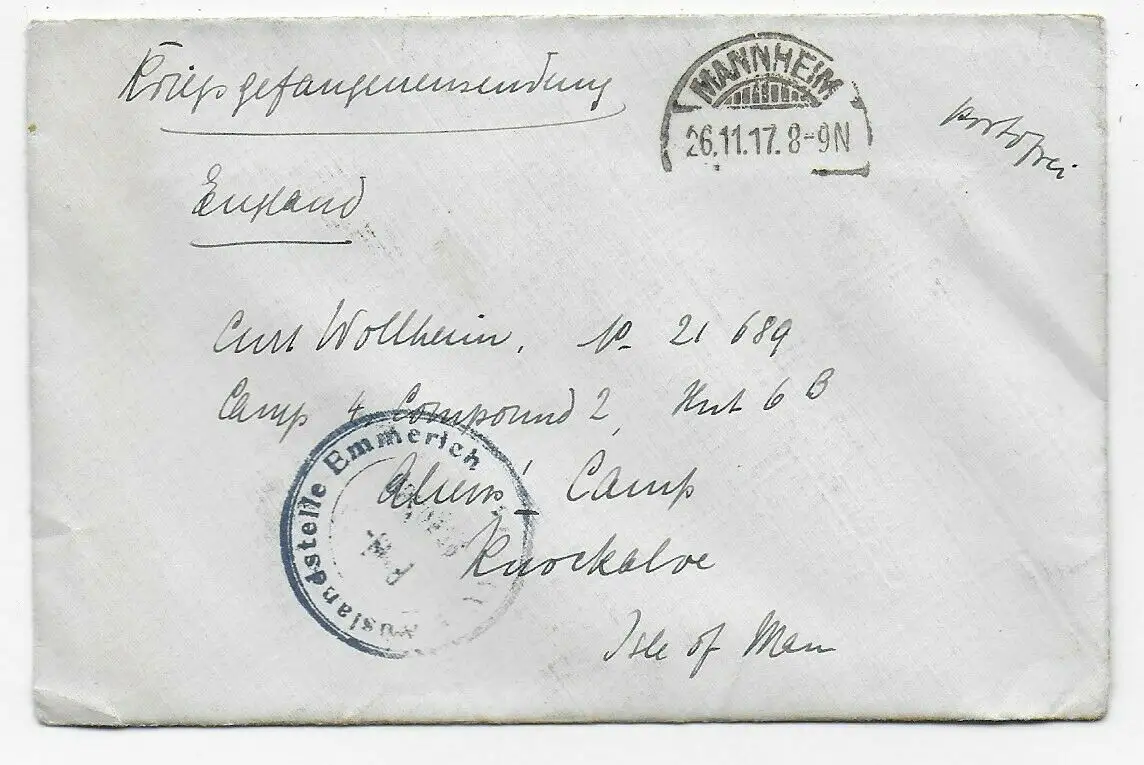 Kriegsgefangenensendung
MANNHEIM
26.11.17. 8-9N
portofrei
England
Curt Wollheim, No 21 689
Camp 4 Compound 2, Hut 6 B
Aliens' Camp
Knockaloe
Isle of Man
Auslandstelle Emmerich